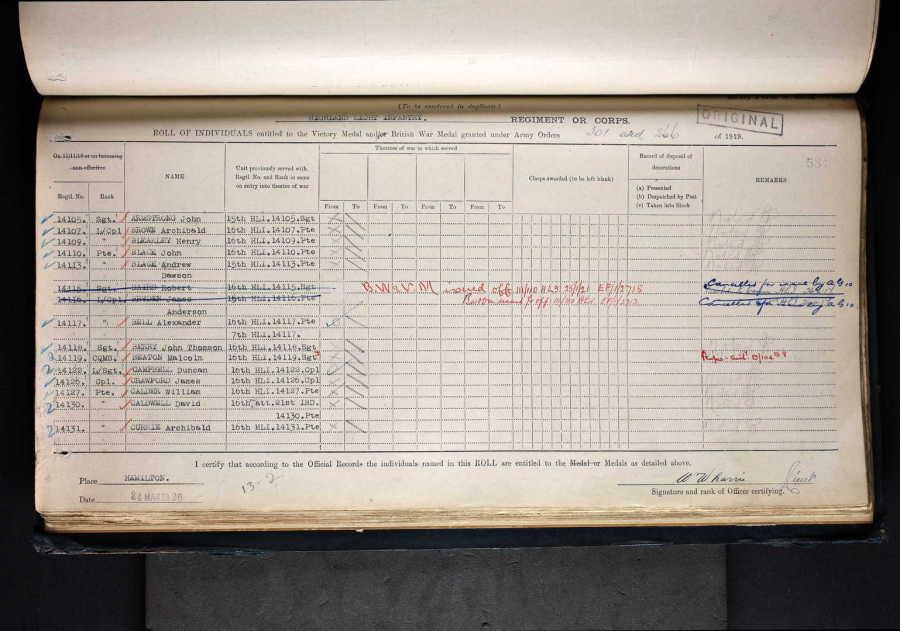 (To be rendered in duplicate)
HIGHLAND LIGHT INFANTRY. REGIMENT OR CORPS.
ORIGINAL
ROLL OF INDIVIDUALS entitled to the Victory Medal and/or British War Medal granted under Army Orders 301 and 266 of 1919.
On 11/11/18 or on becoming non-effective
Regtl. No. Rank
NAME
Unit previously served with. Regtl. No. and Rank in same on entry into theatre of war
Theatres of war in which served
From To From To From To From To
Clasps awarded (to be left blank)
Record of disposal of decorations
(a) Presented
(b) Despatched by Post
(c) Taken into Stock
REMARKS
14105. Sgt. ARMSTRONG John 15th HLI.14105.Sgt
14107. L/Cpl BROWN Archibald 16th HLI.14107.Pte
14109. " BLEAKLEY Henry 16th HLI.14109.Pte
14110. Pte. BLACK John 16th HLI.14110.Pte
14113. " BLACK Andrew 15th HLI.14113.Pte
Dawson
14115. Sgt. Robert 16th HLI.14115.Sgt B.W. & V.M issued off
14116. L/Cpl. James 16th HLI.14116.Pte
Anderson
14117. " BELL Alexander 16th HLI.14117.Pte
7th HLI.14117.
14118. Sgt. BARRY John Thomson 16th HLI.14118.Sgt
14119. CQMS. BEATON Malcolm 16th HLI.14119.Sgt
14122. L/Sgt. CAMPBELL Duncan 16th HLI.14122.Cpl
14126. Cpl. CRAWFORD James 16th HLI.14126.Cpl
14127. Pte. CALDER William 16th HLI.14127.Pte
14130. " CALDWELL David 16th att.21st IBD.
14130.Pte
14131. " CURRIE Archibald 16th HLI.14131.Pte
I certify that according to the Official Records the individuals named in this ROLL are entitled to the Medal or Medals as detailed above.
Place HAMILTON.
13-2
Lieut
Signature and rank of Officer certifying.
Date 24 MAR 1920